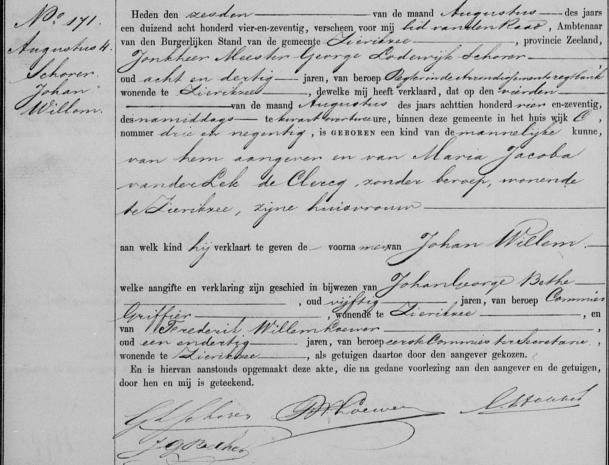 No. 171.
Augustus 4.
Schorer
Johan
Willem.
Heden den zesden van de maand Augustus des jaars
een duizend acht honderd vier-en-zeventig, verscheen voor mij lid van den Raad, Ambtenaar
van den Burgerlijken Stand van de gemeente Zierikzee, provincie Zeeland,
Jonkheer Meester George Lodewijk Schorer
oud acht en dertig jaren, van beroep Regter in de Arrondissements regtbank
wonende te Zierikzee, dewelke mij heeft verklaard, dat op den vierden
van de maand Augustus des jaars achttien honderd vier en-zeventig,
des namiddags te kwart voor twee ure, binnen deze gemeente in het huis wijk C,
nommer drie en negentig, is GEBOREN een kind van de mannelijke kunne,
van hem aangever en van Maria Jacoba
van der Lek de Clercq, zonder beroep, wonende
te Zierikzee, zijne huisvrouw
aan welk kind hij verklaart te geven de voornamen van Johan Willem.
welke aangifte en verklaring zijn geschied in bijwezen van Johan George Bethe
, oud vijftig jaren, van beroep Commies
Griffier, wonende te Zierikzee, en
van Frederik Willem Koewer,
oud een en dertig jaren, van beroep eerste Commies ter Secretarie,
wonende te Zierikzee, als getuigen daartoe door den aangever gekozen.
En is hiervan aanstonds opgemaakt deze akte, die na gedane voorlezing aan den aangever en de getuigen,
door hen en mij is geteekend.
G L Schorer
F W Koewer
J G Bethe